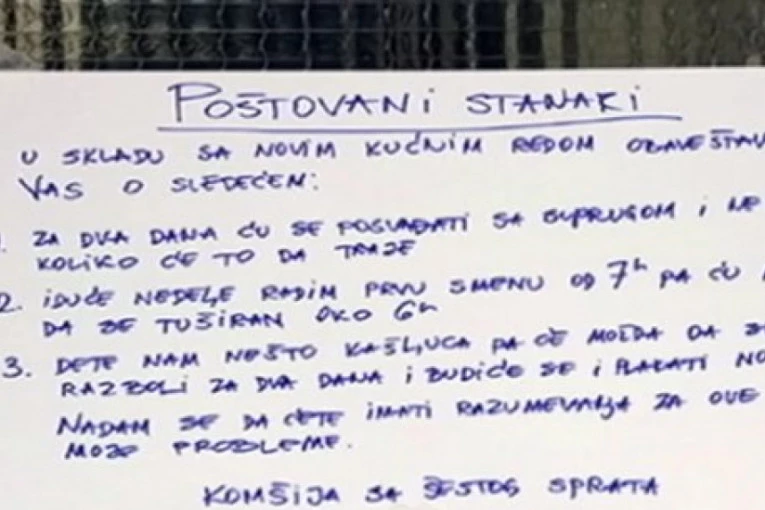 POŠTOVANI STANARI
U SKLADU SA NOVIM KUĆNIM REDOM OBAVEŠTAV
VAS O SLEDEĆEM:
1. ZA DVA DANA ĆU SE POSVAĐATI SA SUPRUGOM I NE
KOLIKO ĆE TO DA TRAJE
2. IDUĆE NEDELJE RADIM PRVU SMENU OD 7h PA ĆU
DA SE TUŠIRAM OKO 6h
3. DETE NAM NEŠTO KAŠLJUCA PA ĆE MOŽDA DA SE
RAZBOLI ZA DVA DANA I BUDIĆE SE I PLAKATI NO
NADAM SE DA ĆETE IMATI RAZUMEVANJA ZA OVE
MOJE PROBLEME.
KOMŠIJA SA ŠESTOG SPRATA